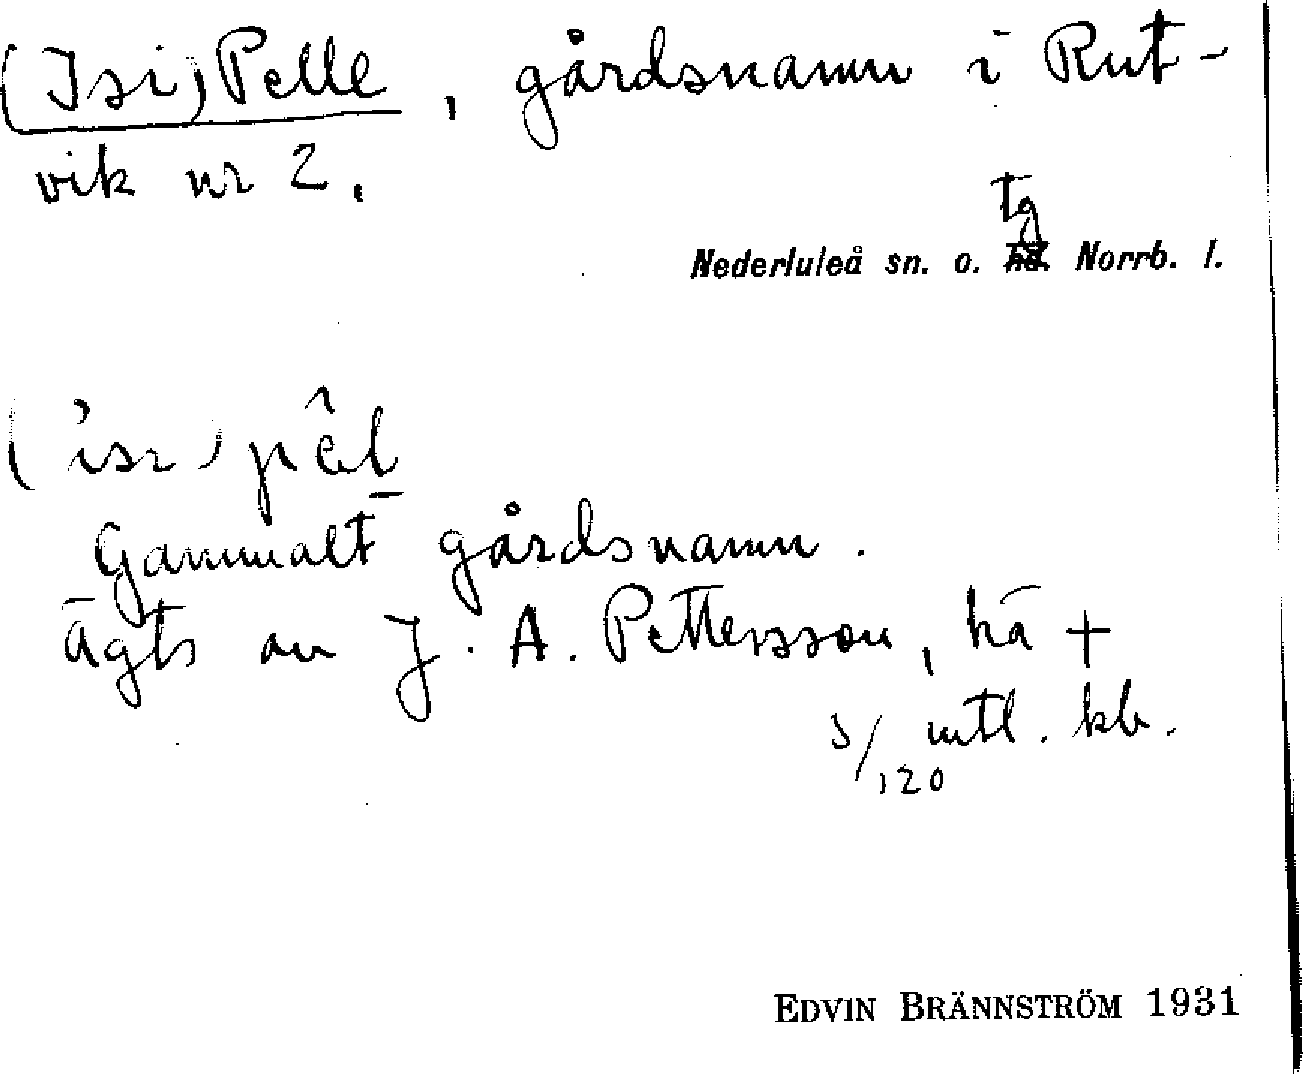 (Isi) Pelle, gårdsnamn i Rut-
vik nr 2.
tg
Nederluleå sn. o. hd. Norrb. l.
Gammalt gårdsnamn.
ägts av J. A. Pettersson, hä +
5/120 mtl. kb.
EDVIN BRÄNNSTRÖM 1931